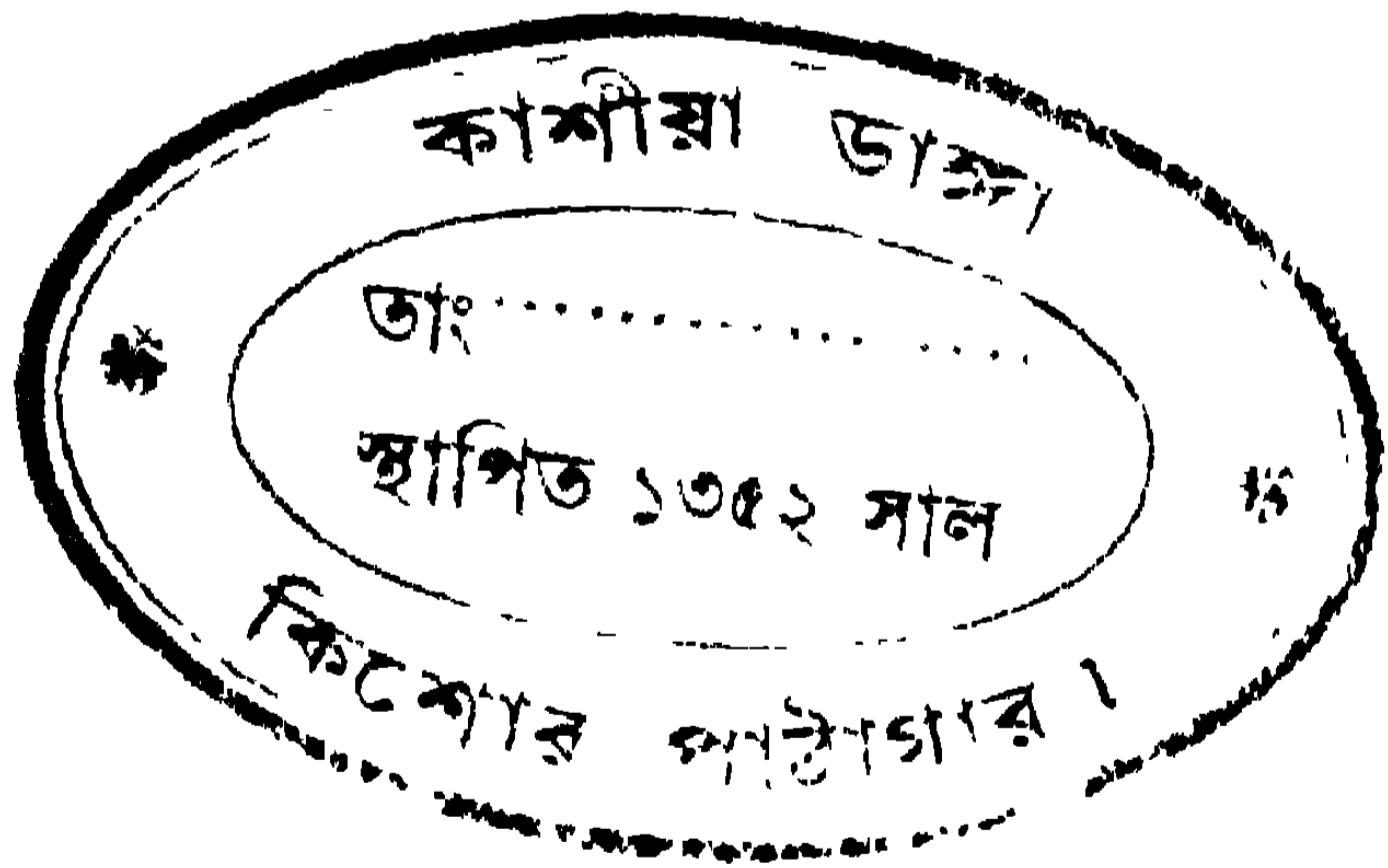 কাশীয়া ডাঙ্গা
তাং..................
স্থাপিত ১৩৫২ সাল
কিশোর পাঠাগার।